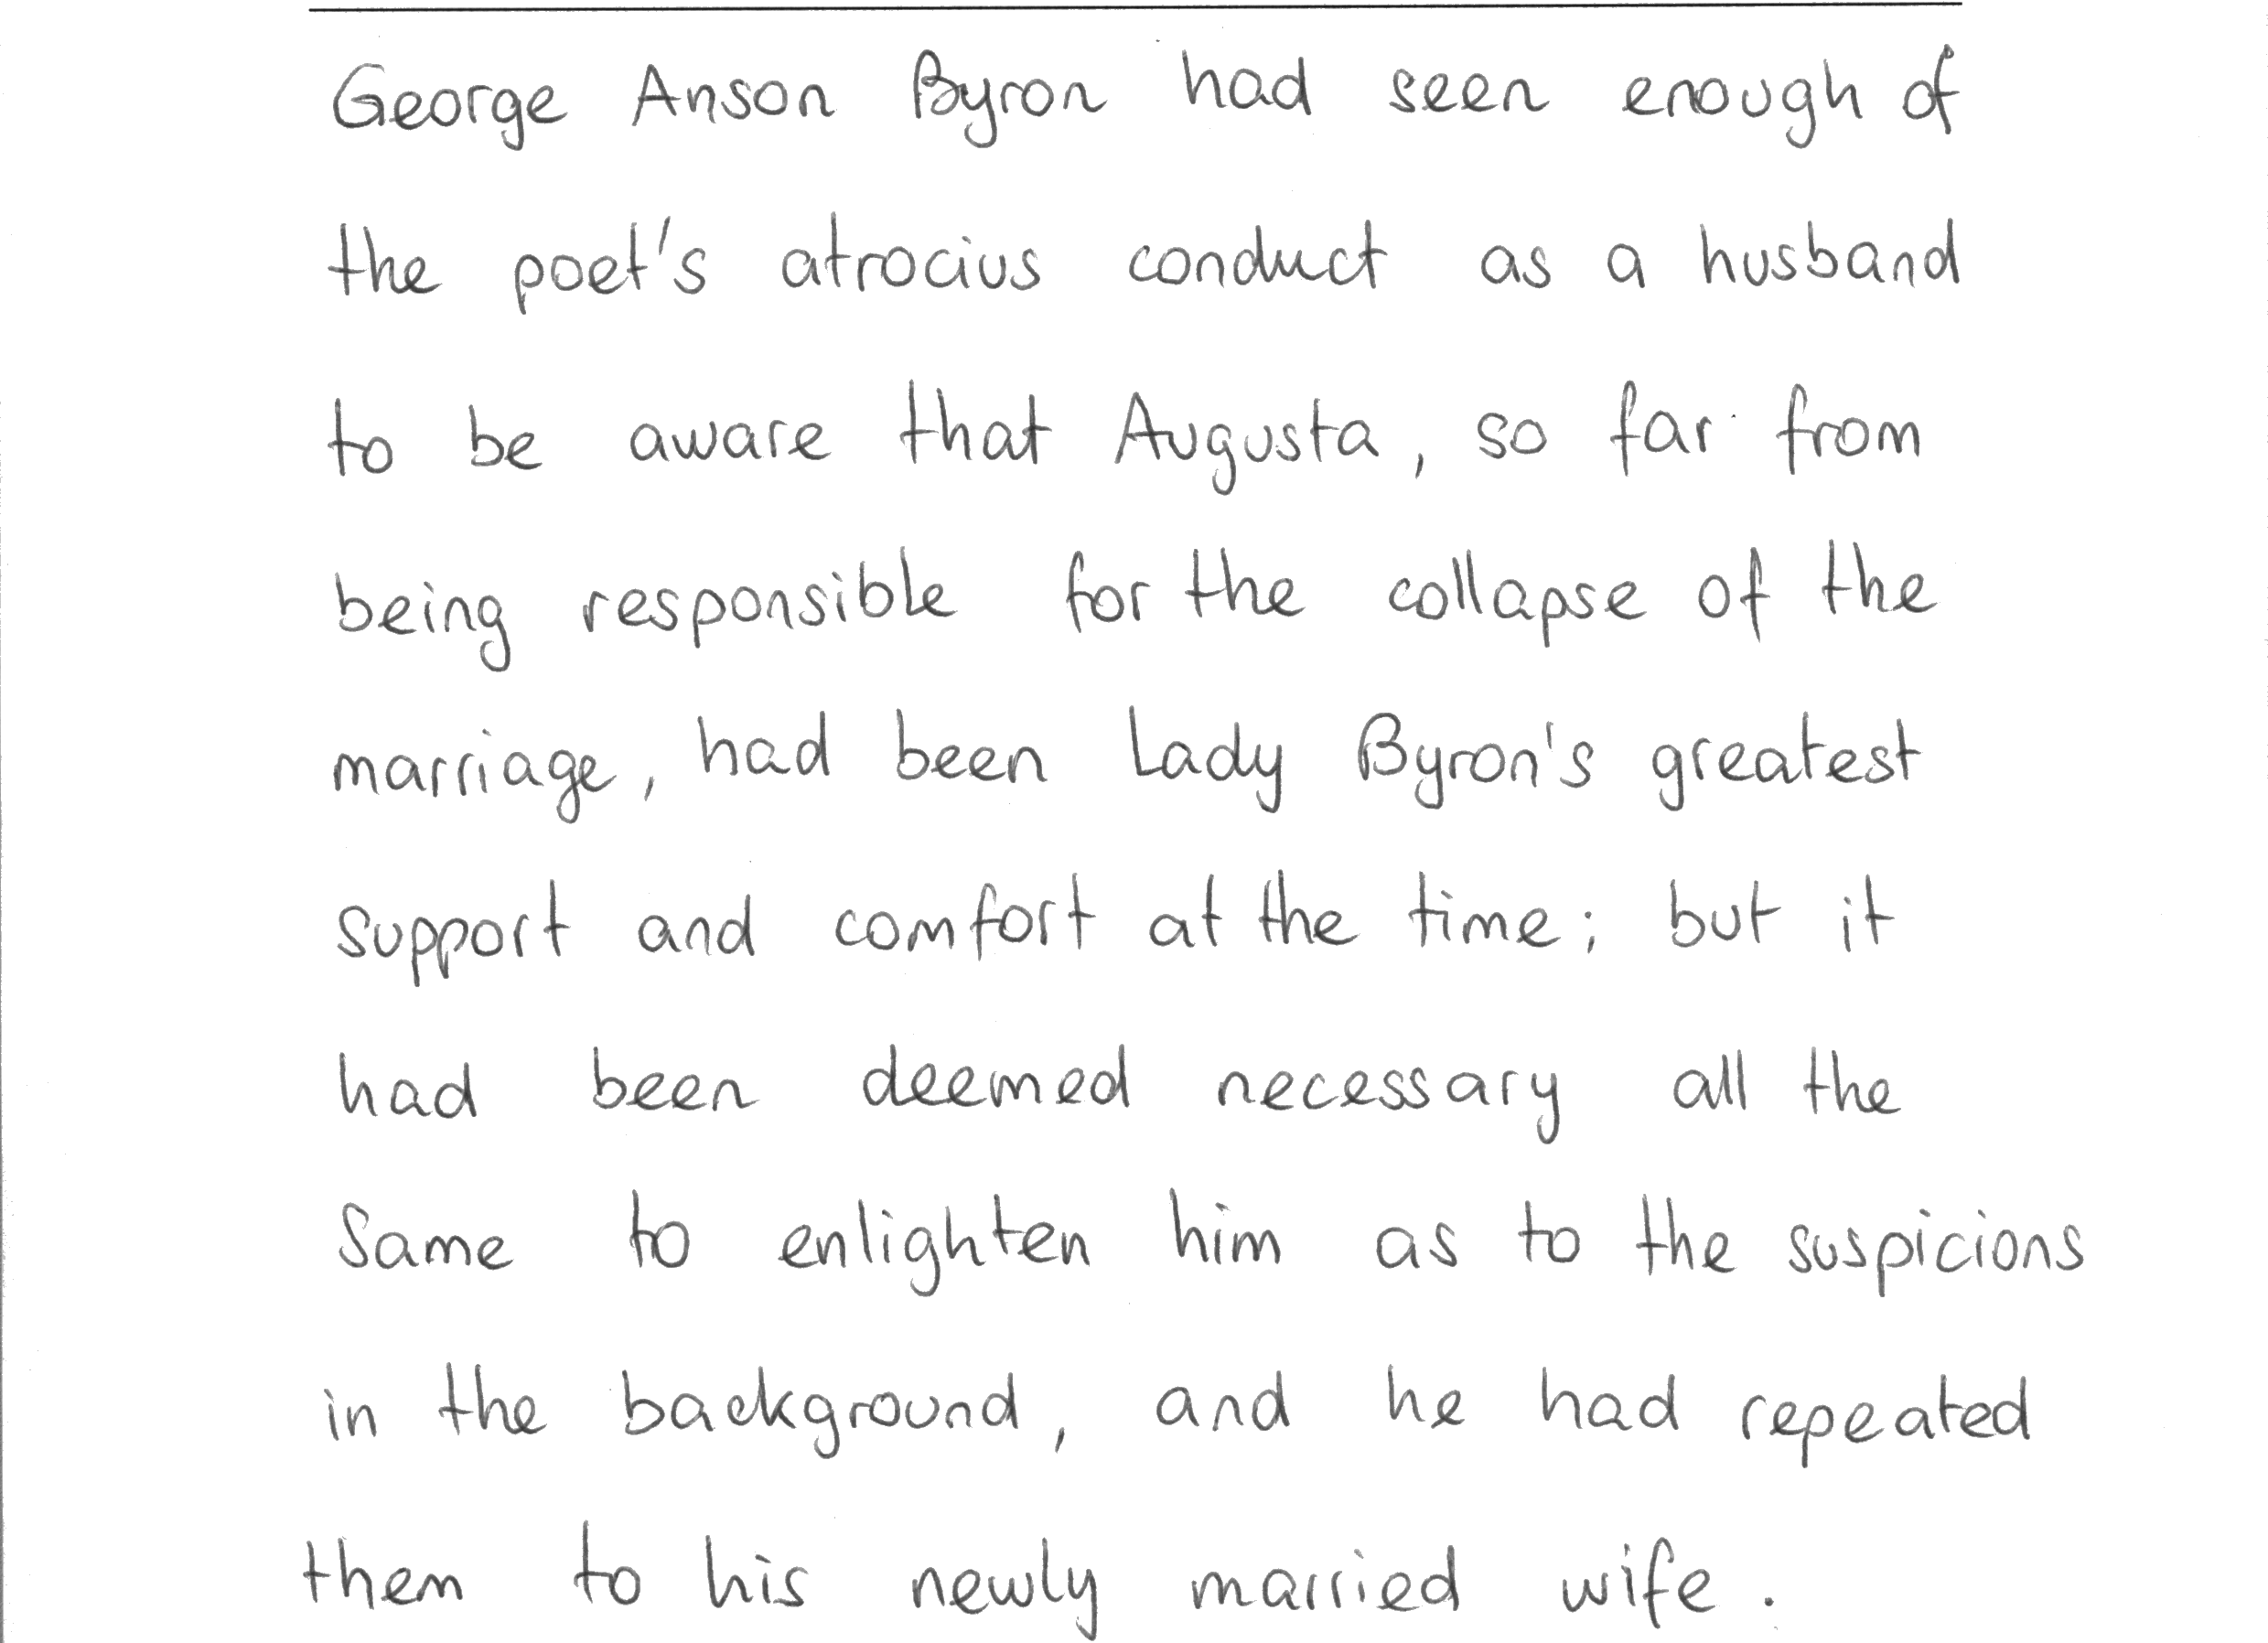 George Anson Byron had seen enough of
the poet's atrocius conduct as a husband
to be aware that Augusta, so far from
being responsible for the collapse of the
marriage, had been Lady Byron's greatest
support and comfort at the time; but it
had been deemed necessary all the
Same to enlighten him as to the suspicions
in the background, and he had repeated
them to his newly married wife.